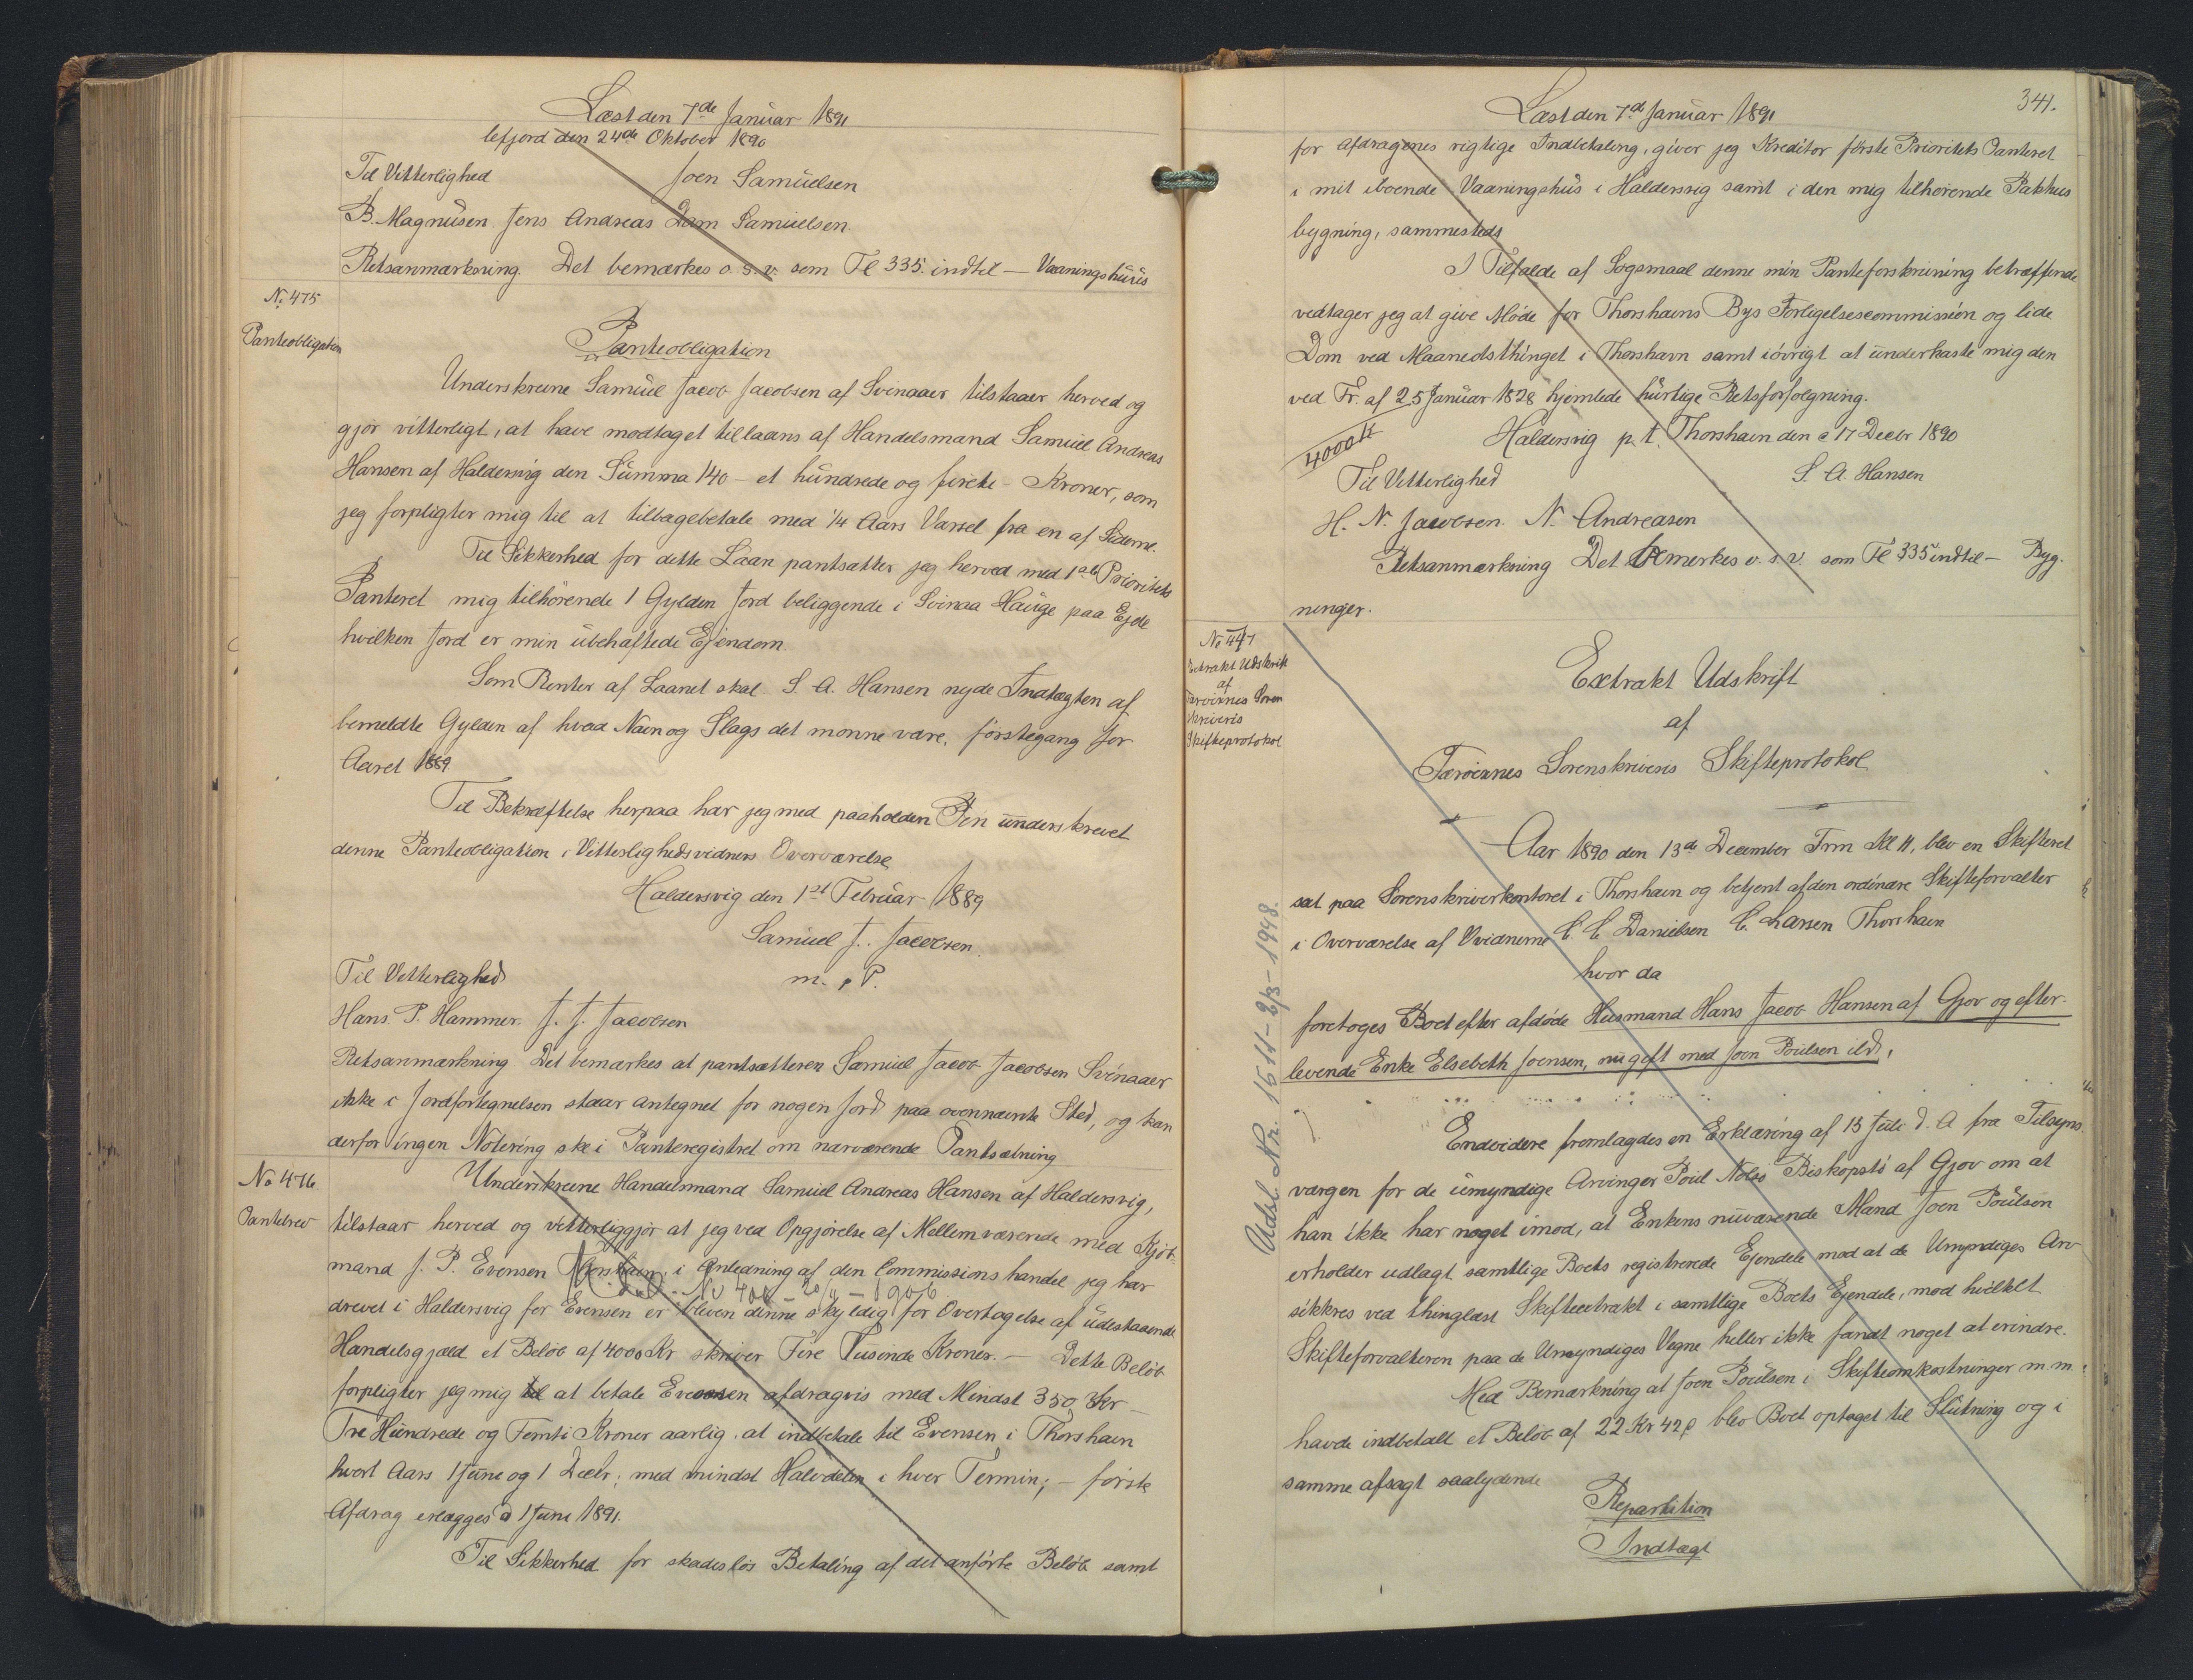 Læst den 7de Januar 1891
lefjord den 24de Oktober 1890
Til Vitterlighed Joen Samuelsen
B. Magnusen Jens Andreas Dam Samuelsen.
Retsanmærkning. Det bemærkes o. s. v. som Fl 335. indtil — Vaaningshuus
No. 475
Panteobligation
Panteobligation
Underskrevne Samuel Jacob Jacobsen af Svinaaer tilstaaer herved og
gjør vitterligt, at have modtaget tillaans af Handelsmand Samuel Andreas
Hansen af Haldersvig den Summa 140 – et hundrede og firete – Kroner, som
jeg forpligter mig til at tilbagebetale med 1/4 Aars Varsel fra en af Siderne.
Til Sikkerhed for dette Laan pantsætter jeg herved med 1ste Prioritets
Panteret mig tilhörende 1 Gylden Jord beliggende i Svinaa Hauge paa Ejde
hvilken Jord er min übehæftede Ejendom.
Som Renter af Laanet skal S. A. Hansen nyde Indtægten af
bemeldte Gylden af hvad Navn og Slags det monne være, förstegang for
Aaret 1889.
Til Bekræftelse herpaa har jeg med paaholden Pen underskrevet
denne Panteobligation i Vitterlighedsvidners Overværelse
Haldersvig den 1st Februar 1889
Samuel J. Jacobsen.
Til Vitterlighed m. p P.
Hans P. Hammer. J. J. Jacobsen
Retsanmærkning Det bemærkes at pantsætteren Samuel Jacob Jacobsen Svinaaer
ikke i Jordfortegnelsen staar antegnet for nogen Jord paa ovennævnte Sted, og kan
derfor ingen Notering ske i Panteregistret om nærværende Pantsætning
No 476.
Pantebrev
Underskrevne Handelsmand Samuel Andreas Hansen af Haldersvig,
tilstaar herved og vitterliggjør at jeg ved Opgjørelse af Mellemværende med Kjøb-
mand J. P. Evensen Thorshavn, i Anledning af den Commissionshandel jeg har
No 400 – 20/4 – 1906
drevet i Haldersvig for Evensen er bleven denne skyldig for Overtagelse af udestaaende
Handelsgjæld et Beløb af 4000 Kr skriver Fire Tusende Kroner. — Dette Beløb
forpligter jeg mig til at betale Evensen afdragvis med Mindst 350 Kr –
Tre Hundrede og Femti Kroner aarlig at indbetale til Evensen i Thorshavn
hvert Aars 1 June og 1 Decbr; med mindst Halvdelen i hver Termin; – første
Afdrag erlægges d 1 Juni 1891.
Til Sikkerhed for skadesløs Betaling af det anførte Beløb samt
341.
Læst den 7d Januar 1891
for Afdragenes rigtige Indbetaling, giver jeg Kreditor første Prioritets Panteret
i mit iboende Vaaningshus i Haldersvig samt i den mig tilhørende Pakhus
bygning, sammesteds
I Tilfælde af Søgsmaal denne min Panteforskrivning betræffende
vedtager jeg at give Møde for Thorshavns Bys Forligelsescommission og lide
Dom ved Maanedsthinget i Thorshavn samt iövrigt at underkaste mig den
ved Fr. af 25 Januar 1828 hjemlede hurtige Retsforfølgning.
4000 Kr
Haldersvig p. t. Thorshavn den 17 Decbr 1890
Til Vitterlighed S. A. Hansen
H. N. Jacobsen. N. Andreasen
Retsanmærkning Det bemerkes o. s. v. som Fl 335 indtil – Byg.
ninger.
No 447
Extrakt Udskrift
af
Færøernes Soren
skriveris
Skifteprotokol
Extrakt Udskrift
af
Færøernes Sorenskriveris Skifteprotokol
Aar 1890 den 13de December Frm Kl 11, blev en Skifteret
sat paa Sorenskriverkontoret i Thorshavn og betjent af den ordinære Skifteforvalter
i Overværelse af Vvidnerne C. C. Danielsen C. Larsen Thorshavn
hvor da
foretoges Boet efter afdøde Husmand Hans Jacob Hansen af Gjov og efter-
levende Enke Elsebeth Joensen, nu gift med Joen Poulsen ibd,
Endvidere fremlagdes en Erklæring af 15 Juli d. A fra Tilsyns-
værgen for de umyndige Arvinger Poul Niels Biskopstö af Gjov om at
han ikke har noget imod, at Enkens nuværende Mand Joen Poulsen
erholder udlagt samtlige Boets registrerede Ejendele mod at de Umyndiges Arv
sikkres ved thinglæst Skifteextrakt i samtlige Boets Ejendele, mod hvilket
Skifteforvalteren paa de Umyndiges Vegne heller ikke fandt noget at erindre.
Med Bemærkning at Joen Poulsen i Skifteomkostninger m. m.
havde indbetalt et Beløb af 22 Kr 42 ø blev Boet optaget til Slutning og i
samme afsagt saalydende
Repartition
Indtægt
Udsl. Nr. 1511 – 2/3 – 1948.